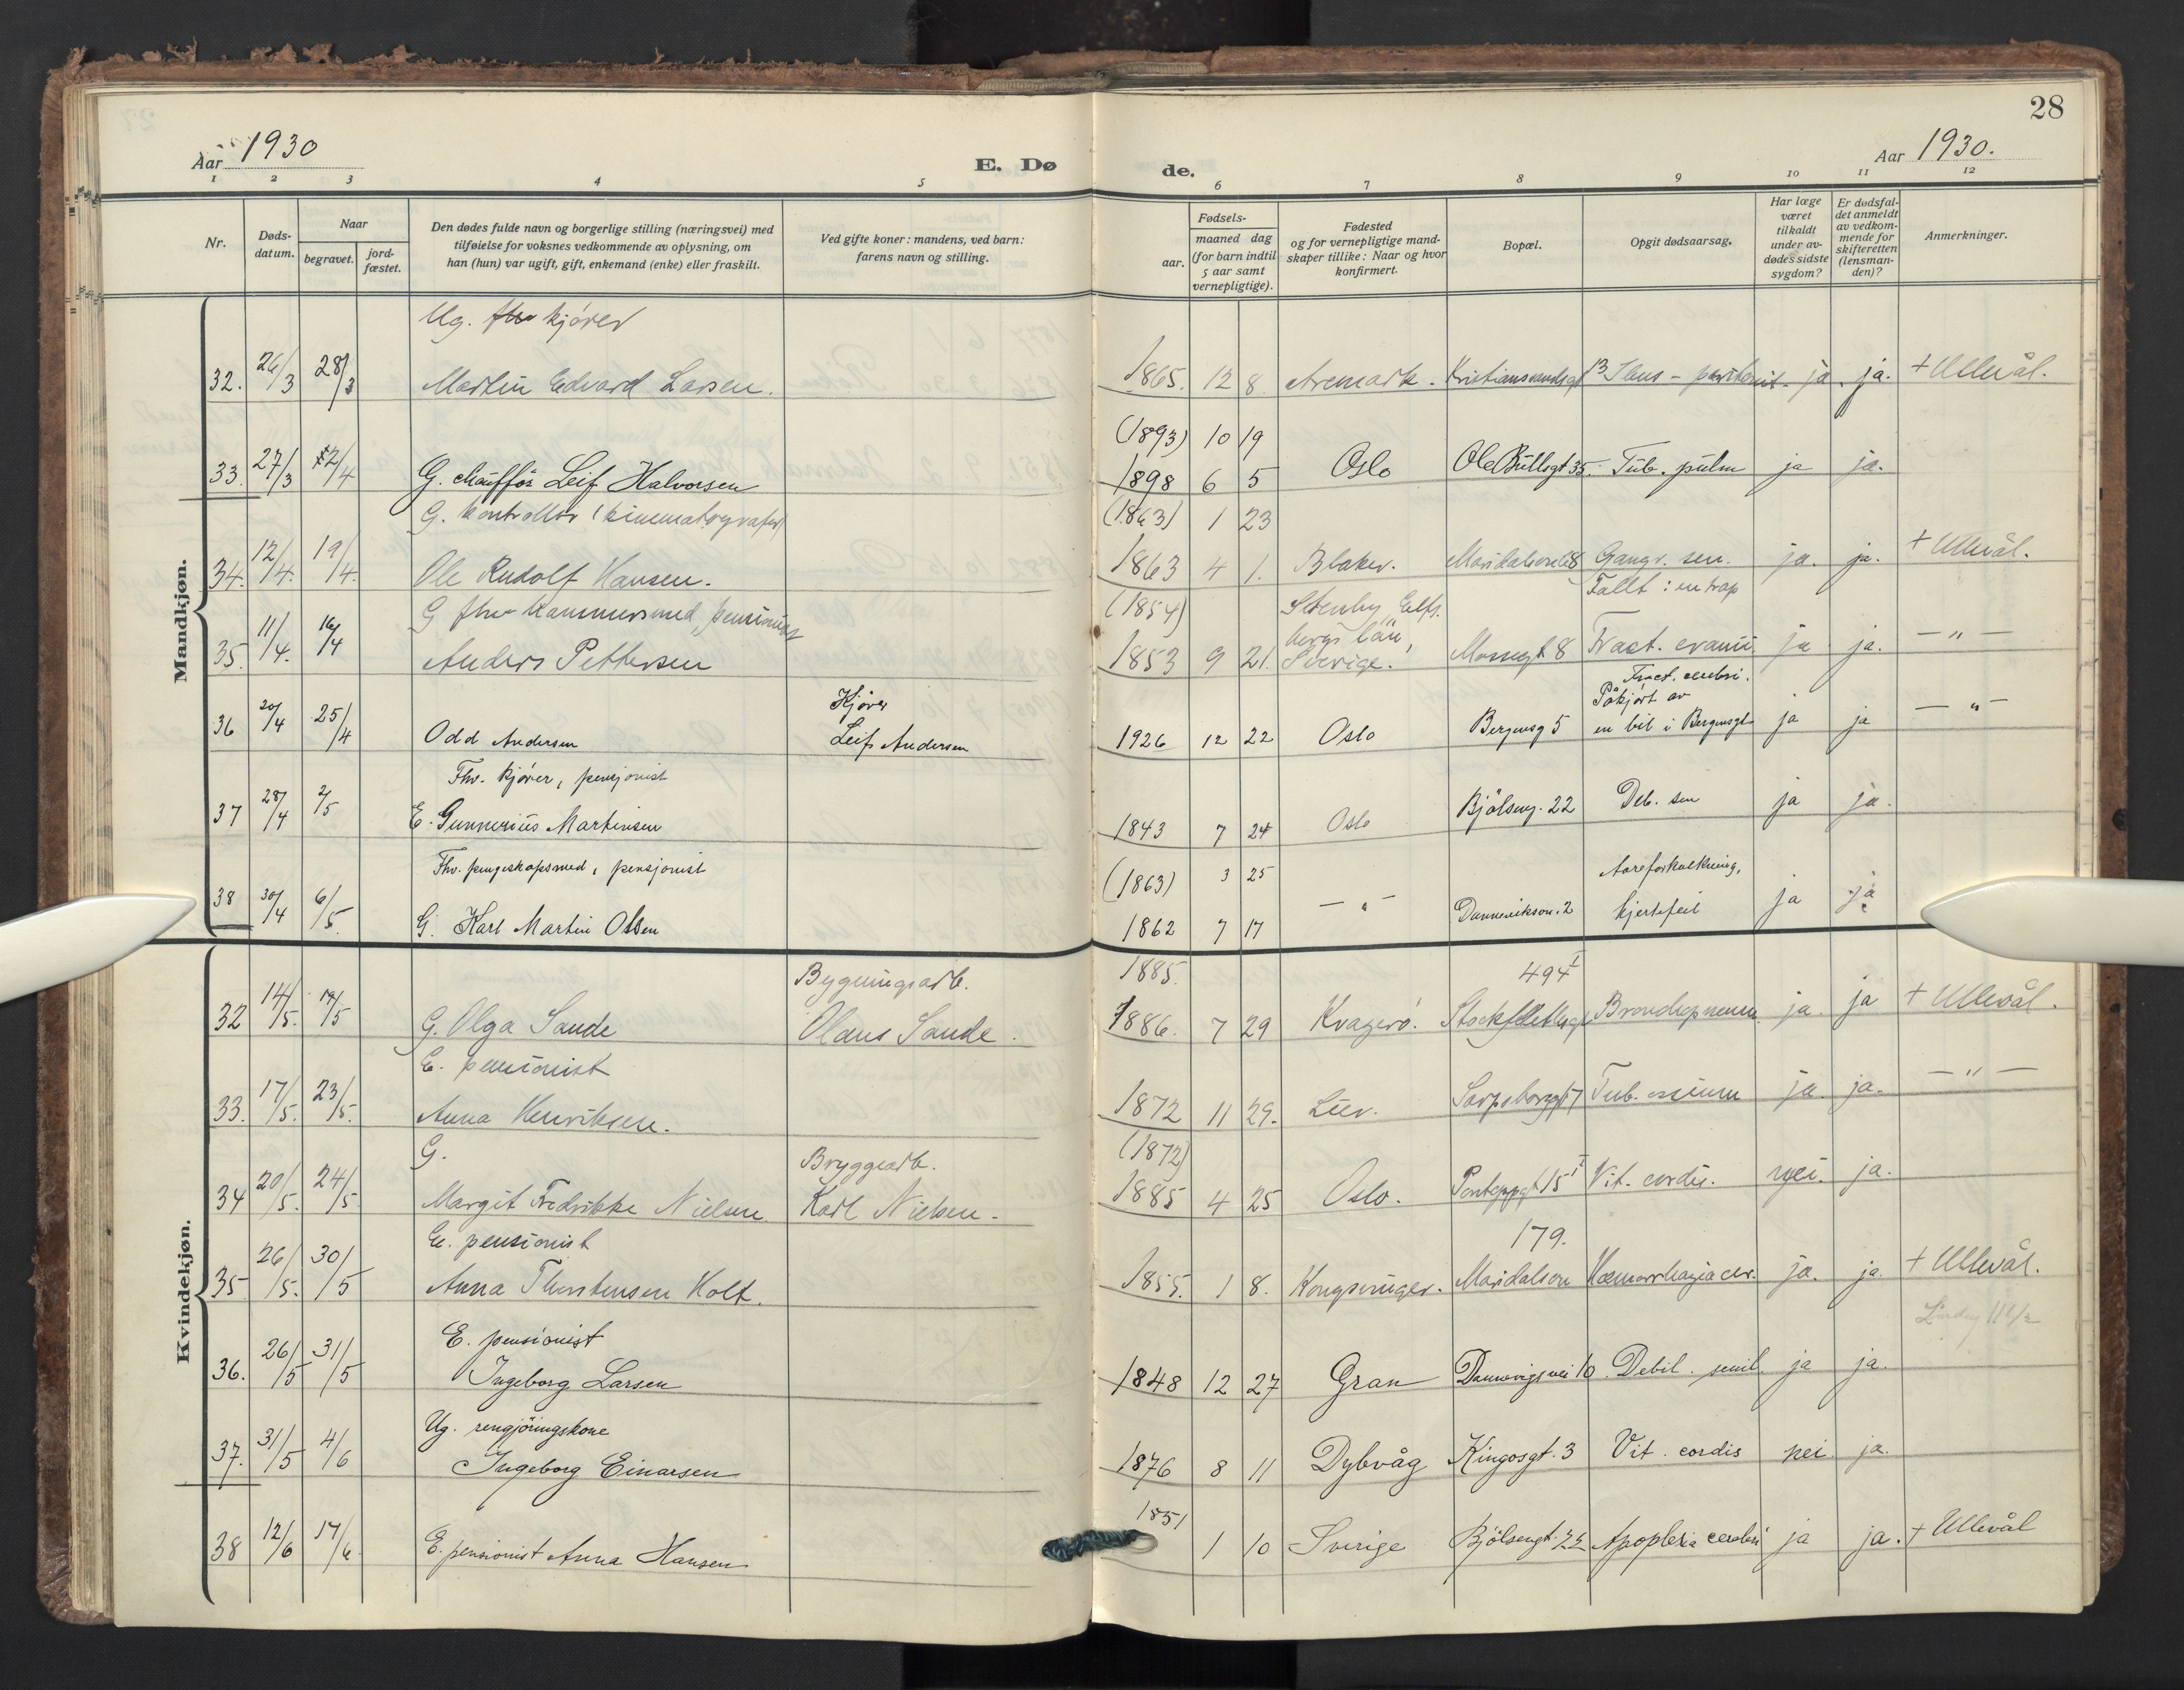 28
Aar 1930
E. Dø
de.
Aar 1930.
1 2 3 4 5 6 7 8 9 10 11 12
Nr.
Døds-
datum.
Naar
begravet.
jord-
fæstet.
Den dødes fulde navn og borgerlige stilling (næringsvei) med
tilføielse for voksnes vedkommende av oplysning, om
han (hun) var ugift, gift, enkemand (enke) eller fraskilt.
Ved gifte koner: mandens, ved barn:
farens navn og stilling.
Fødsels-
aar.
maaned dag
(for barn indtil
5 aar samt
vernepligtige).
Fødested
og for vernepligtige mand-
skaper tillike: Naar og hvor
konfirmert.
Bopæl.
Opgit dødsaarsag.
Har læge
været
tilkaldt
under av-
dødes sidste
sygdom?
Er dødsfal-
det anmeldt
av vedkom-
mende for
skifteretten
(lensman-
den)?
Anmerkninger.
Mandkjøn.
Ug. fhv kjører
32. 26/3 28/3 Martin Edvard Larsen. 1865. 12 8. Aremark. Kristiansandsgt 13 Ileus - peritonit. ja. ja. + Ullevål.
(1893) 10 19
33. 27/3 2/4 G. chauffør Leif Halvorsen 1898 6 5 Oslo Ole Bullsgt 35. Tub. pulm ja ja.
G. kontrollør (kinematografer) (1863) 1 23
34. 12/4. 19/4. Ole Rudolf Hansen. 1863 4 1. Blaker. Maridalsvei 68 Gangr. sen. ja. ja. + Ullevål.
Fallt i en trap
G fhv hammersmed, pensionist (1854) Stenby, Elfs.
bergs län,
35. 11/4. 16/4 Anders Pettersen 1853 9 21. Sverige. Mossegt 8 Fract. cranii. ja ja. — " —
Fract. cerebri.
Kjører Påkjørt av
36 20/4 25/4 Odd Andersen Leif Andersen 1926 12 22 Oslo Bergensg 5 en bil i Bergensgt ja ja — " —
Fhv. kjører, pensjonist
37 28/4 2/5 E. Gunnerius Martinsen 1843 7 24 Oslo Bjølseng. 22 Deb. sen ja ja.
Fhv. pengeskapsmed, pensjonist (1863) 3 25 Aareforkalkning,
38 30/4 6/5. G. Karl Martin Olsen 1862 7 17 — " — Dannevikson. 2 hjertefeil ja ja
Kvindekjøn.
Bygningsarb. 1885. 494 I
32 14/5. 19/5 G. Olga Sande Olaus Sande. 1886. 7 29 Kragerø. Stockflethsgt Bronchopneum. ja. ja + Ullevål.
E. pensionist
33. 17/5. 23/5. Anna Henriksen. 1872 11 29. Lier. Sarpsborggt 7 Tub. ossium ja. ja. — " —
G. Bryggearb. (1872)
34 20/5. 24/5. Margit Fredrikke Nielsen. Karl Nielsen. 1885 4 25 Oslo. Pontoppgt 15 I Vit. cordis. nei. ja.
E. pensionist 179.
35 26/5. 30/5 Anna Thorstensen Holt. 1855. 1 8. Kongsvinger. Maridalsvn Hæmorrhagia cer. ja. ja. + Ullevål.
E. pensionist
36. 26/5 31/5 Ingeborg Larsen 1848 12 27 Gran Dannevigsvei 10. Debil. senil ja ja.
Ug. rengjøringskone
37. 31/5 4/6 Ingeborg Einarsen 1876 8 11 Dybvåg Kingosgt. 3 Vit. cordis nei ja.
1851
38 12/6 17/6. E. pensionist Anna Hansen 1 10 Sverige Bjølsengt. 22 Apoplexia cerebri ja ja. + Ullevål